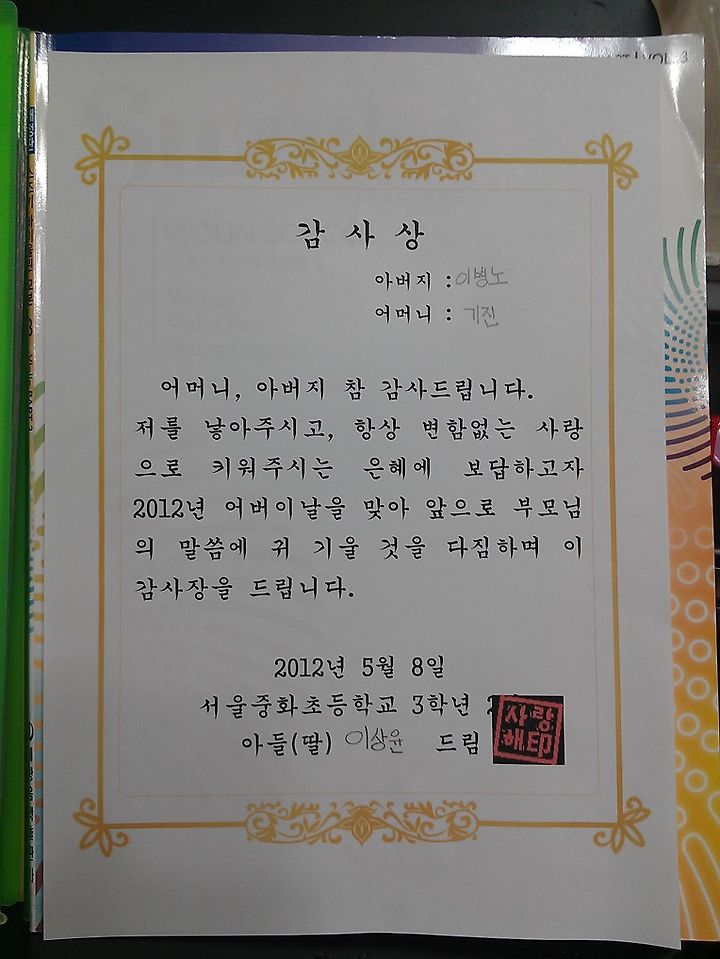 VOL. 3
감사상
아버지 : 이병노
어머니 : 기진
어머니, 아버지 참 감사드립니다.
저를 낳아주시고, 항상 변함없는 사랑
으로 키워주시는 은혜에 보답하고자
2012년 어버이날을 맞아 앞으로 부모님
의 말씀에 귀 기울 것을 다짐하며 이
감사장을 드립니다.
2012년 5월 8일
서울중화초등학교 3학년
아들(딸) 이상윤 드림
사랑
해印